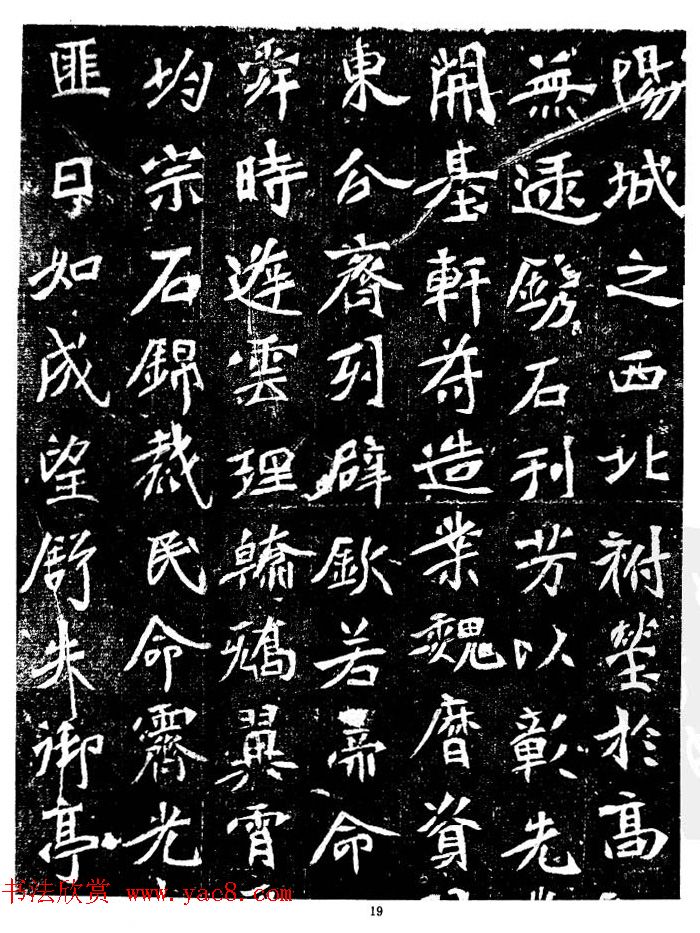 陽城之西北祔塋於高
無鐫石刊芳以彰先
開基軒符造業魏曆資
東公齊列辟欽若帝命
舜時遊雲理翰矯翼霄
均宗石錦裁民命霽光
匪日如成望舒失御亭
书法欣赏 www.yac8.com
19